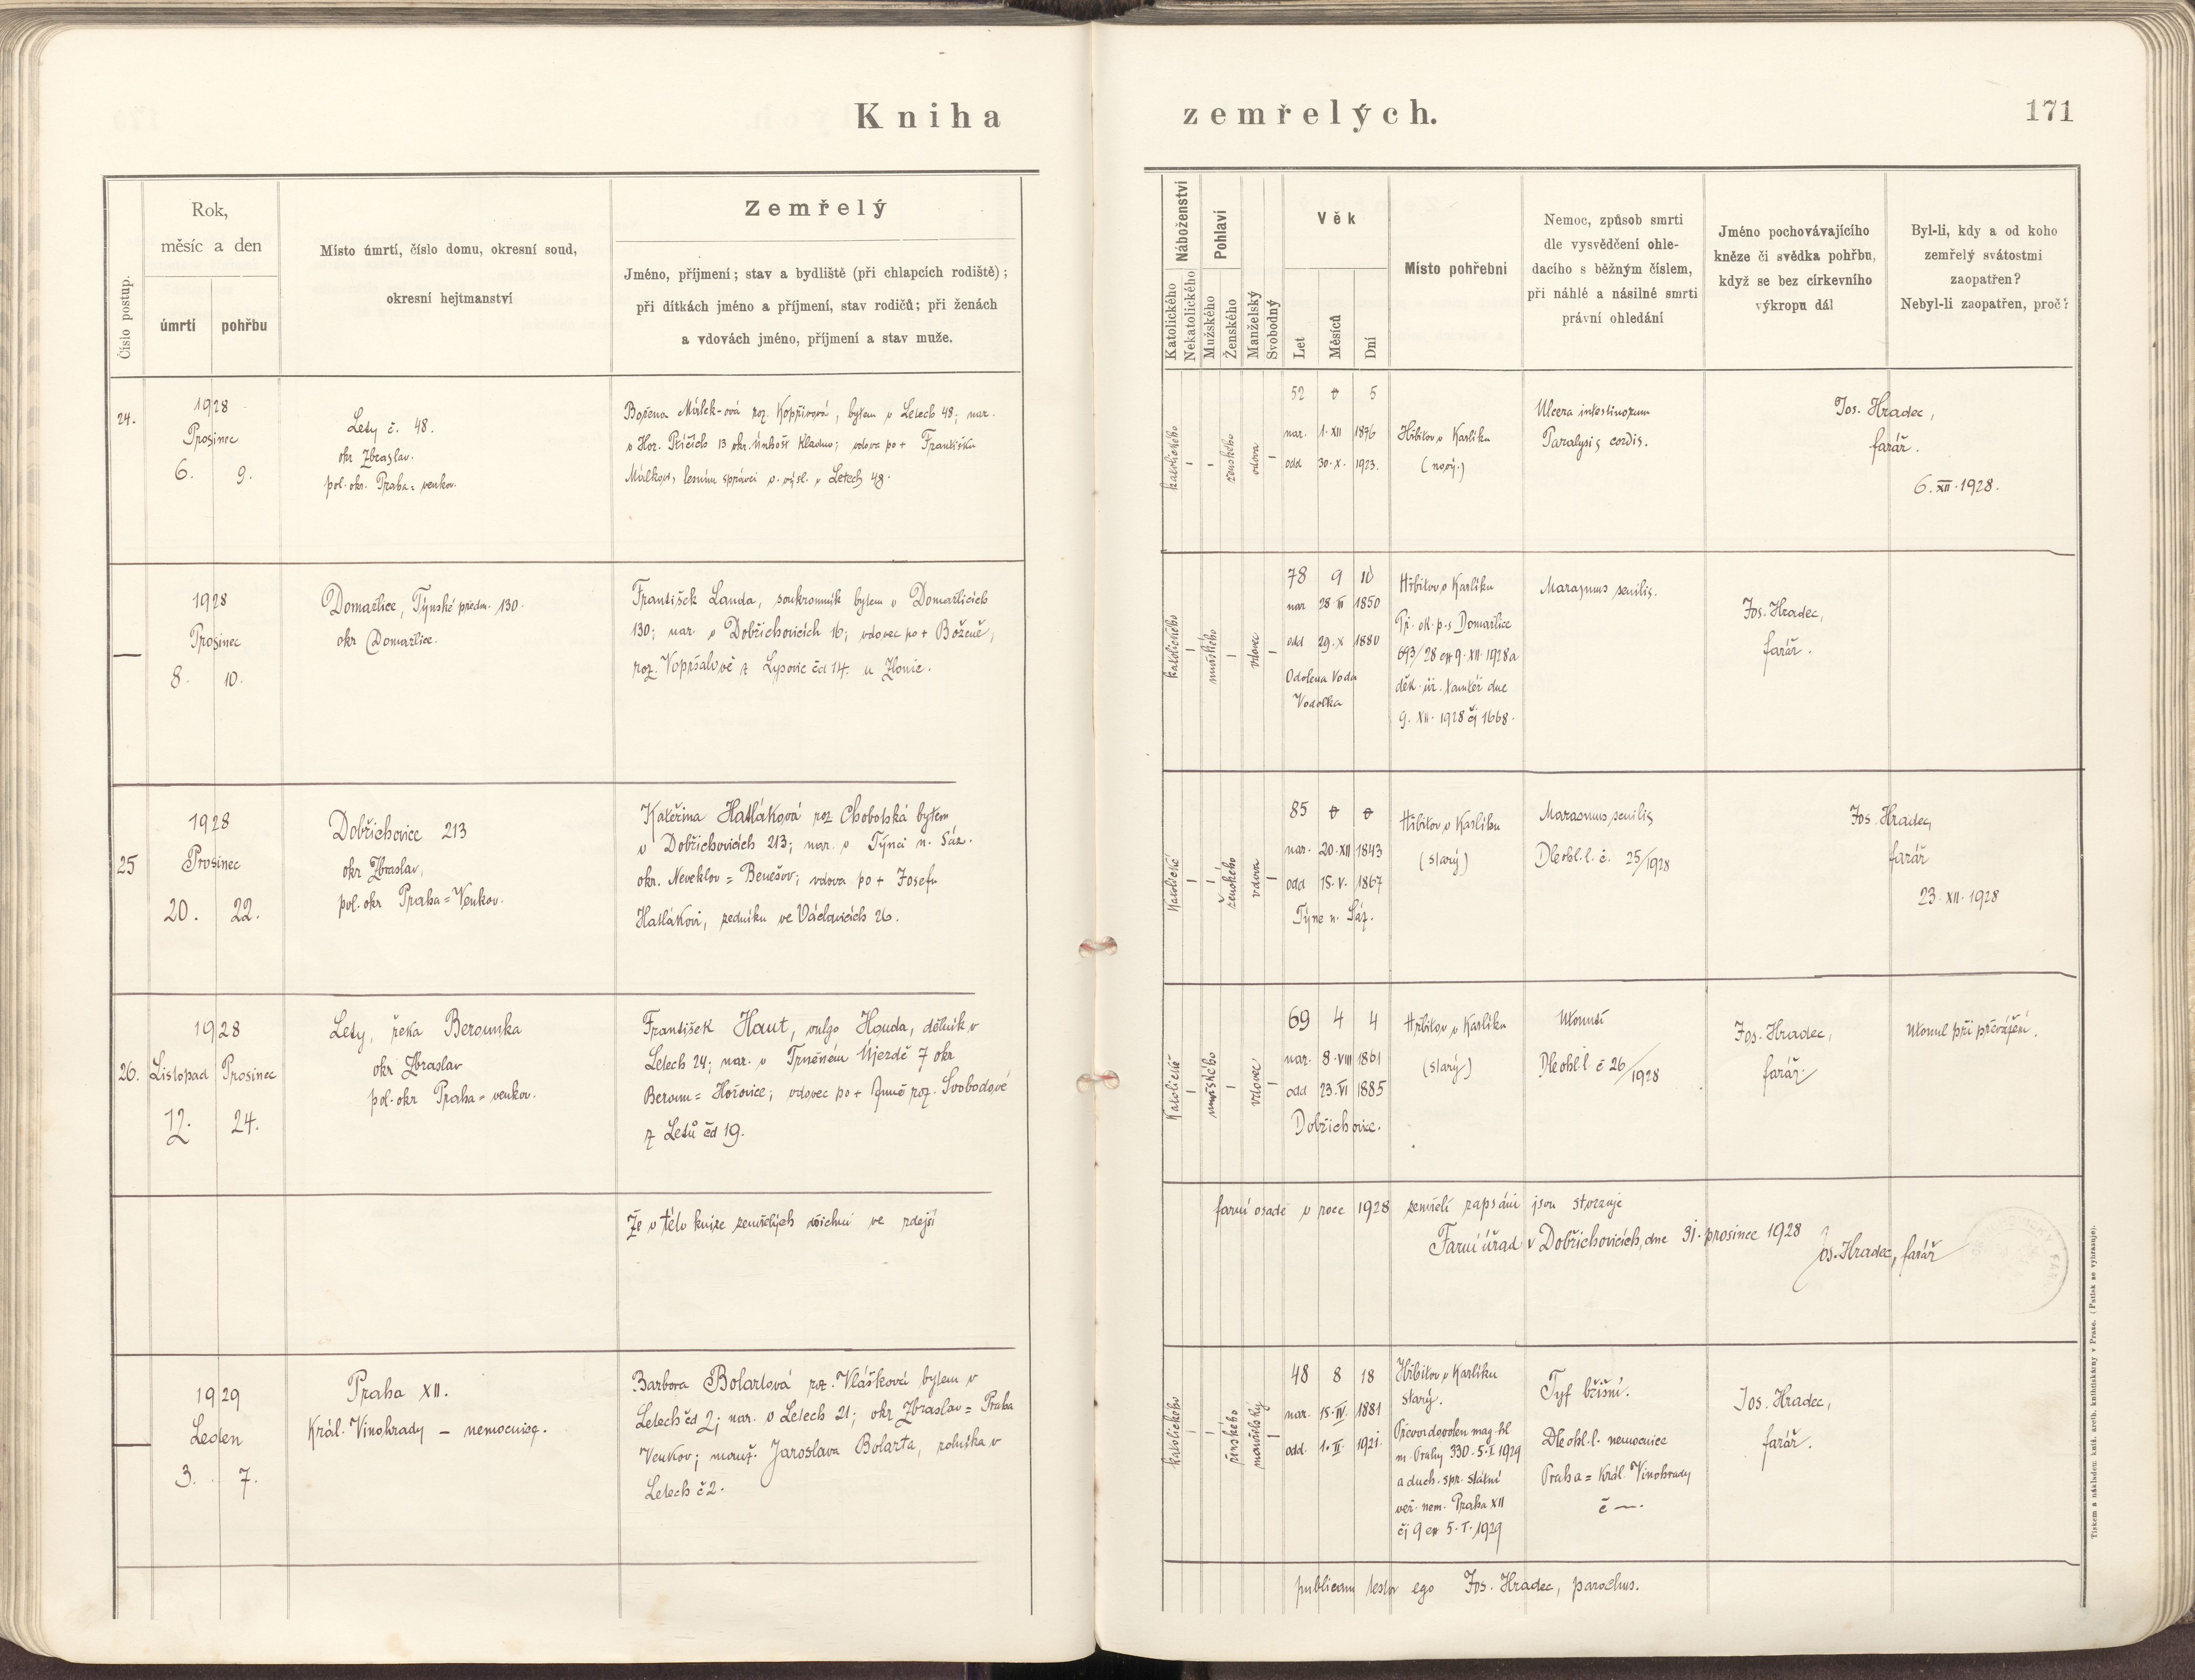 Kniha
zemřelých.
171
Číslo postup.
Rok,
měsíc a den
úmrtí
pohřbu
Místo úmrtí, číslo domu, okresní soud,
okresní hejtmanství
Zemřelý
Jméno, příjmení; stav a bydliště (při chlapcích rodiště);
při dítkách jméno a příjmení, stav rodičů; při ženách
a vdovách jméno, příjmení a stav muže.
Náboženství
Katolického
Nekatolického
Pohlaví
Mužského
Ženského
Manželský
Svobodný
Věk
Let
Měsíců
Dní
Místo pohřební
Nemoc, způsob smrti
dle vysvědčení ohle-
dacího s běžným číslem,
při náhlé a násilné smrti
právní ohledání
Jméno pochovávajícího
kněze či svědka pohřbu,
když se bez církevního
výkropu dál
Byl-li, kdy a od koho
zemřelý svátostmi
zaopatřen?
Nebyl-li zaopatřen, proč?
24.
1928
Prosinec
6. 9.
Lety č. 48.
okr Zbraslav.
pol. okr. Praha = venkov.
Božena Málek-ová roz. Kopřivová, bytem v Letech 48; nar.
v Hor. Ptičích 13 okr. Unhošť Kladno; vdova po + Františku
Málkovi, lesním správci v. výsl. v Letech 48.
katolického
ženského
vdova
52 0 5
nar. 1. XII 1876
odd 30. X. 1923.
Hřbitov v Karlíku
(nový.)
Ulcera intestinorum
Paralysis cordis.
Jos. Hradec,
farář.
6. XII. 1928.
1928
Prosinec
8. 10.
Domažlice, Týnské předm. 130.
okr Domažlice.
František Landa, soukromník bytem v Domažlicích
130; nar. v Dobřichovicích 16; vdovec po + Boženě,
roz. Vopršalově z Lysovic čd 14. u Zlonic.
katolického
mužského
vdovec
78 9 10
nar 28. II 1850
odd 29. X 1880
Odolena Voda
Vodolka
Hřbitov v Karlíku
Př. ok. p. s Domažlice
693/28 ex 9. XII. 1928 a
děk. úř. tamtéž dne
9. XII. 1928 čj 1668.
Marasmus senilis.
Jos. Hradec,
farář.
25
1928
Prosinec
20. 22.
Dobřichovice 213
okr Zbraslav,
pol. okr Praha = Venkov.
Kateřina Hatláková roz Chobotská bytem
v Dobřichovicích 213; nar. v Týnci n. Sáz.
okr. Neveklov = Benešov; vdova po + Josefu
Hatlákovi, zedníku ve Václavicích 26.
Katolické
ženského
vdova
85 0 0
nar. 20. XII 1843
odd 15. V. 1867
Týnec n. Sáz.
Hřbitov v Karlíku
(starý)
Marasmus senilis
Dle ohl. l. č. 25/1928
Jos. Hradec,
farář
23. XII. 1928
26.
1928
Listopad Prosinec
12. 24.
Lety, řeka Berounka
okr Zbraslav
pol. okr Praha = venkov.
František Haut, vulgo Houda, dělník v
Letech 24; nar. v Trněném Újezdě 7 okr
Beroun = Hořovice; vdovec po + Anně roz. Svobodové
z Letů čd 19.
Katolické
mužského
vdovec
69 4 4
nar. 8. VIII 1861
odd 23. VI 1885
Dobřichovice.
Hřbitov v Karlíku
(starý)
Utonutí
Dle ohl. l. č 26/1928
Jos. Hradec,
farář.
Utonul při převážení.
Že v této knize zemřelých všichni ve zdejší
farní osadě v roce 1928 zemřelí zapsáni jsou stvrzuje
Farní úřad v Dobřichovicích, dne 31. prosince 1928
Jos. Hradec, farář
1929
Leden
3. 7.
Praha XII.
Král. Vinohrady – nemocnice.
Barbora Bolartová roz. Vlášková bytem v
Letech čd 2; nar. v Letech 21; okr Zbraslav = Praha
Venkov; manž. Jaroslava Bolarta, rolníka v
Letech č 2.
katolického
ženského
manželský
48 8 18
nar. 15. IV. 1881
odd. 1. II. 1921.
Hřbitov v Karlíku
starý.
Převoz dovolen mag. hl
m. Prahy 330. 5. I 1929
a duch. spr. státní
veř. nem. Praha XII
čj 9 ex 5. I. 1929
Tyf břišní.
Dle ohl. l. nemocnice
Praha = Král. Vinohrady
č —.
Jos. Hradec,
farář.
publicum testor ego Jos. Hradec, parochus.
Tiskem a nákladem kníž. arcib. knihtiskárny v Praze. (Patisk se vyhrazuje).